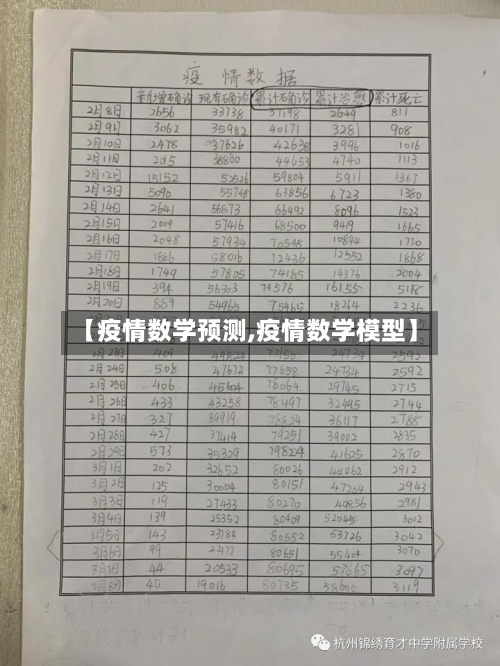 疫情数据
新增确诊 现有确诊 累计确诊 累计治愈 累计死亡
2月8日 2656 33738 37198 2649 811
2月9日 3062 35982 40171 3281 908
2月10日 2478 37626 42638 3996 1016
2月11日 2015 38800 44653 4740 1113
2月12日 15152 52526 59804 5911 1367
2月13日 5090 55748 63856 6723 1380
2月14日 2641 56873 66492 8096 1523
2月15日 2009 57416 68500 9419 1665
2月16日 2048 57934 70548 10844 1770
2月17日 1886 58016 72436 12552 1868
2月18日 1749 57805 74185 14376 2004
2月19日 394 56303 74576 16155
2月20日 889 54965 75465 18264 2236
【疫情数学预测,疫情数学模型】
409 49824 77150 24734 2592
2月24日 508 47672 77658 24734 2592
2月25日 406 45604 78064 29745 2715
2月26日 433 43258 78497 32495 2744
2月27日 327 39919 78824 36117 2788
2月28日 427 37414 79251 39002 2835
2月29日 573 35329 79824 41625 2870
3月1日 202 32652 80026 44462 2912
3月2日 125 30004 80151 47204 2943
3月3日 119 27433 80270 2981
3月4日 139 25352 80409 52045 3012
3月5日 143 23784 80552 53726 3042
3月6日 99 80651 55404 3070
3月7日 44 20533 80695 3097
3月8日 40 19016 80735 58600 3119
杭州锦绣育才中学附属学校